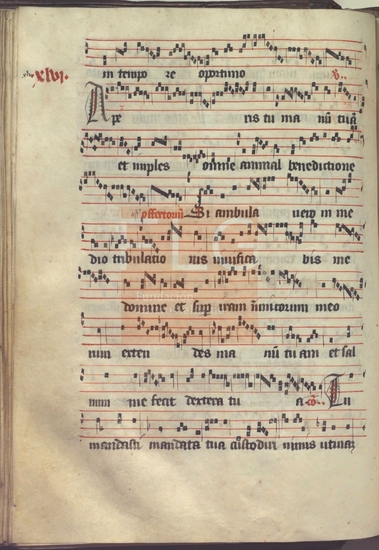 in tempo re oportuno V.
xlvi.
Ape ris tu ma nū tuā
et imples omne animal benedictione
offertoriū Si ambula vero in me
dio tribulacio nis viuifica bis me
domine et sup iram inimicorum meo
rum exten des ma nū tu am et sal
uum me fecit dextera tu a cō. Tu
mandasti mandata tua custodiri nimis utinaz